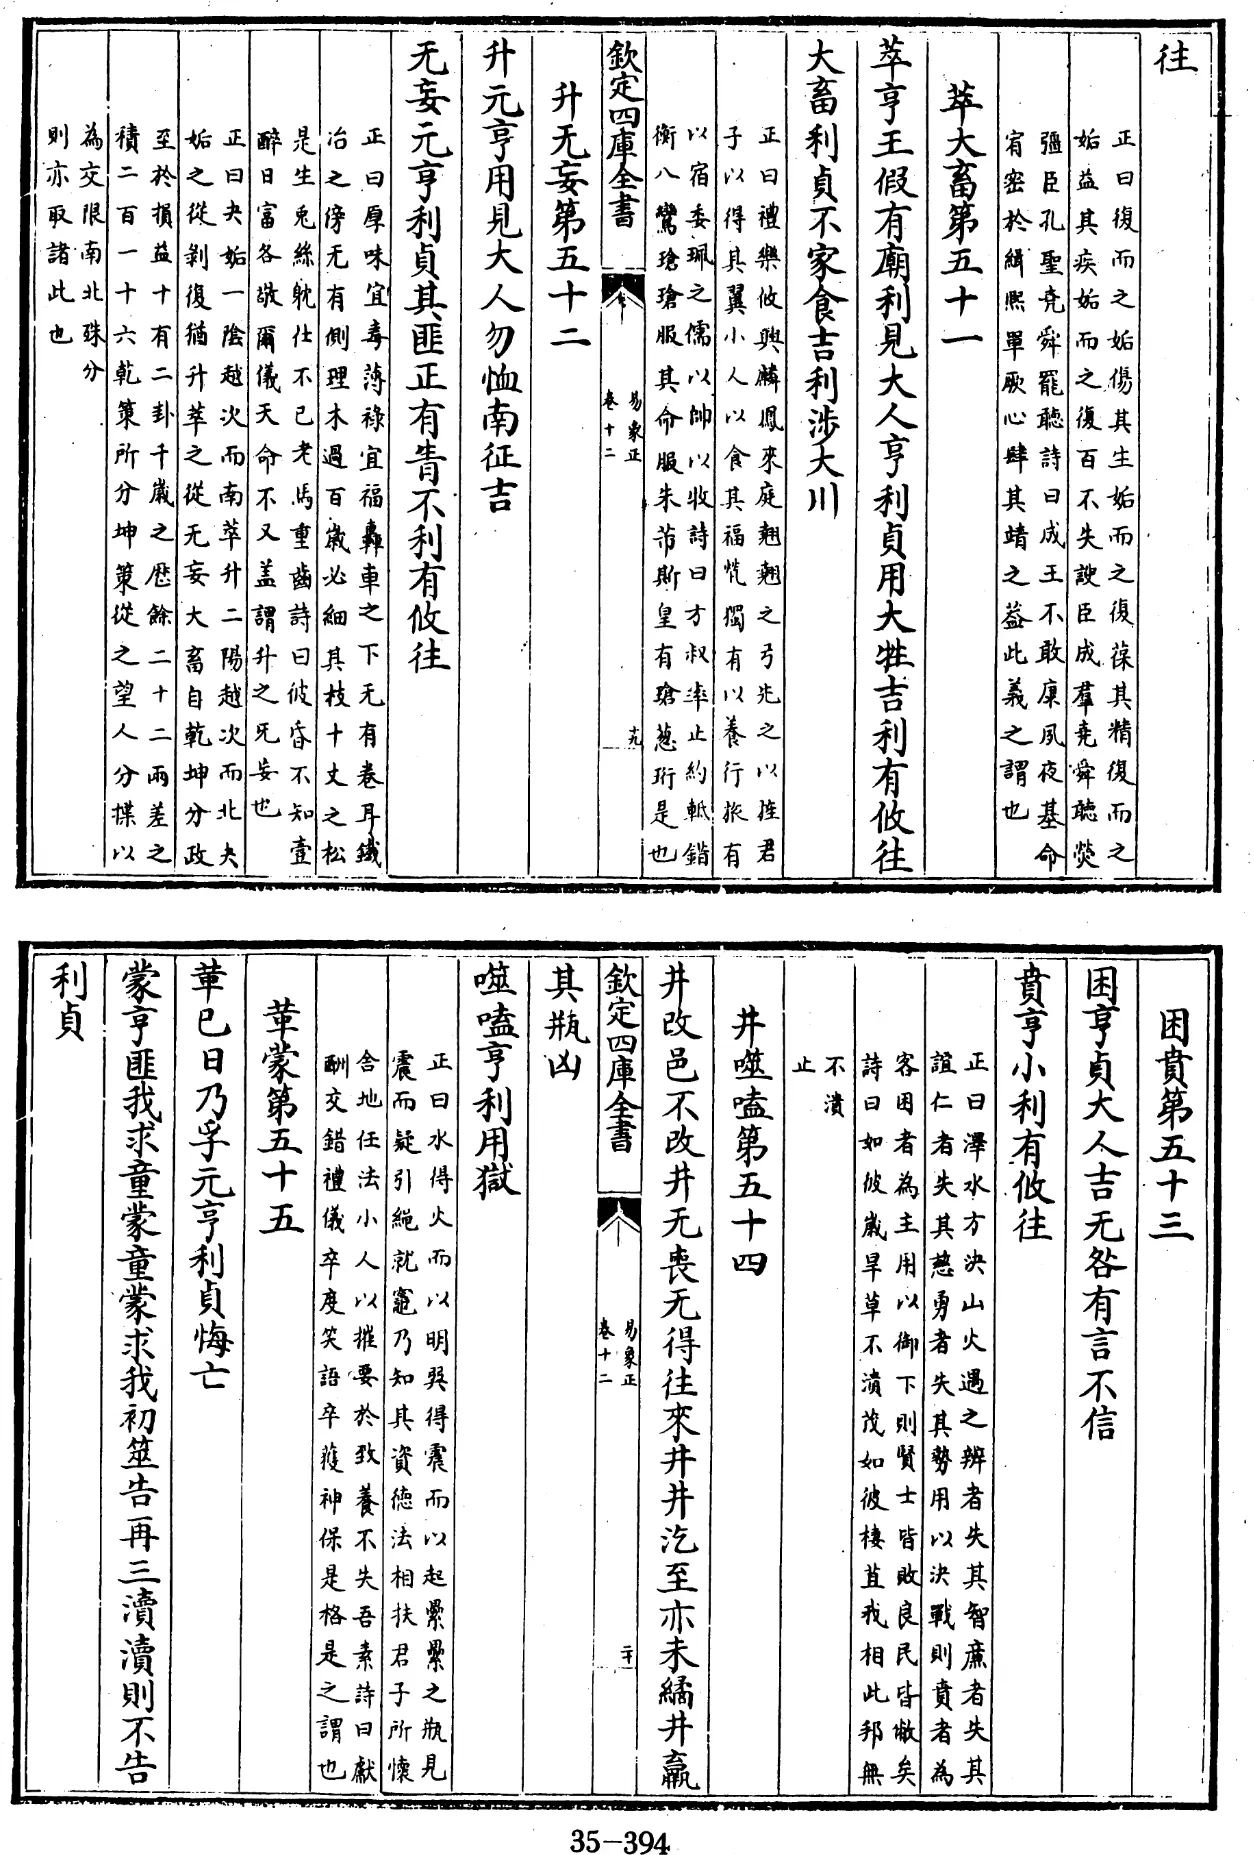 往
正曰復而之姤傷其生姤而之復葆其精復而之
姤益其疾姤而之復百不失諛臣成羣堯舜聽熒
彊臣孔聖堯舜罷聽詩曰成王不敢康夙夜基命
宥密於緝熙單厥心肆其靖之益此義之謂也
萃大畜第五十一
萃亨王假有廟利見大人亨利貞用大牲吉利有攸往
大畜利貞不家食吉利涉大川
正曰禮樂攸興麟鳳來庭翹翹之弓先之以旌君
子以得其翼小人以食其福煢獨有以養行旅有
以宿委珮之儒以帥以牧詩曰方叔率止約軝錯
衡八鸞瑲瑲服其命服朱芾斯皇有瑲葱珩是也
欽定四庫全書
易象正
卷十二
十九
升无妄第五十二
升元亨用見大人勿恤南征吉
无妄元亨利貞其匪正有眚不利有攸往
正曰厚味宜毒薄祿宜福轟車之下无有卷耳鐵
冶之傍无有側理木過百歲必細其枝十丈之松
是生兎絲躭仕不已老馬重齒詩曰彼昏不知壹
醉日富各敬爾儀天命不又盖謂升之旡妄也
正曰夬姤一陰越次而南萃升二陽越次而北夬
姤之從剝復猶升萃之從无妄大畜自乾坤分政
至於損益十有二卦千歲之歷餘二十二兩差之
積二百一十六乾策所分坤策從之望人分揲以
為交限南北殊分
則亦取諸此也
困賁第五十三
困亨貞大人吉无咎有言不信
賁亨小利有攸往
正曰澤水方決山火遇之辨者失其智廉者失其
誼仁者失其慈勇者失其勢用以決戰則賁者為
客困者為主用以御下則賢士皆敗良民皆㒑矣
詩曰如彼歲旱草不潰茂如彼棲苴我相此邦無
不潰
止
井噬嗑第五十四
井改邑不改井无喪无得往來井井汔至亦未繘井羸
欽定四庫全書
易象正
卷十二
二十
其瓶凶
噬嗑亨利用獄
正曰水得火而以明巽得震而以起纍纍之瓶見
震而疑引繩就竈乃知其資德法相扶君子所懷
舍地任法小人以摧要於致養不失吾素詩曰獻
酬交錯禮儀卒度笑語卒獲神保是格是之謂也
革蒙第五十五
革已日乃孚元亨利貞悔亡
蒙亨匪我求童蒙童蒙求我初筮告再三瀆瀆則不告
利貞
35-394